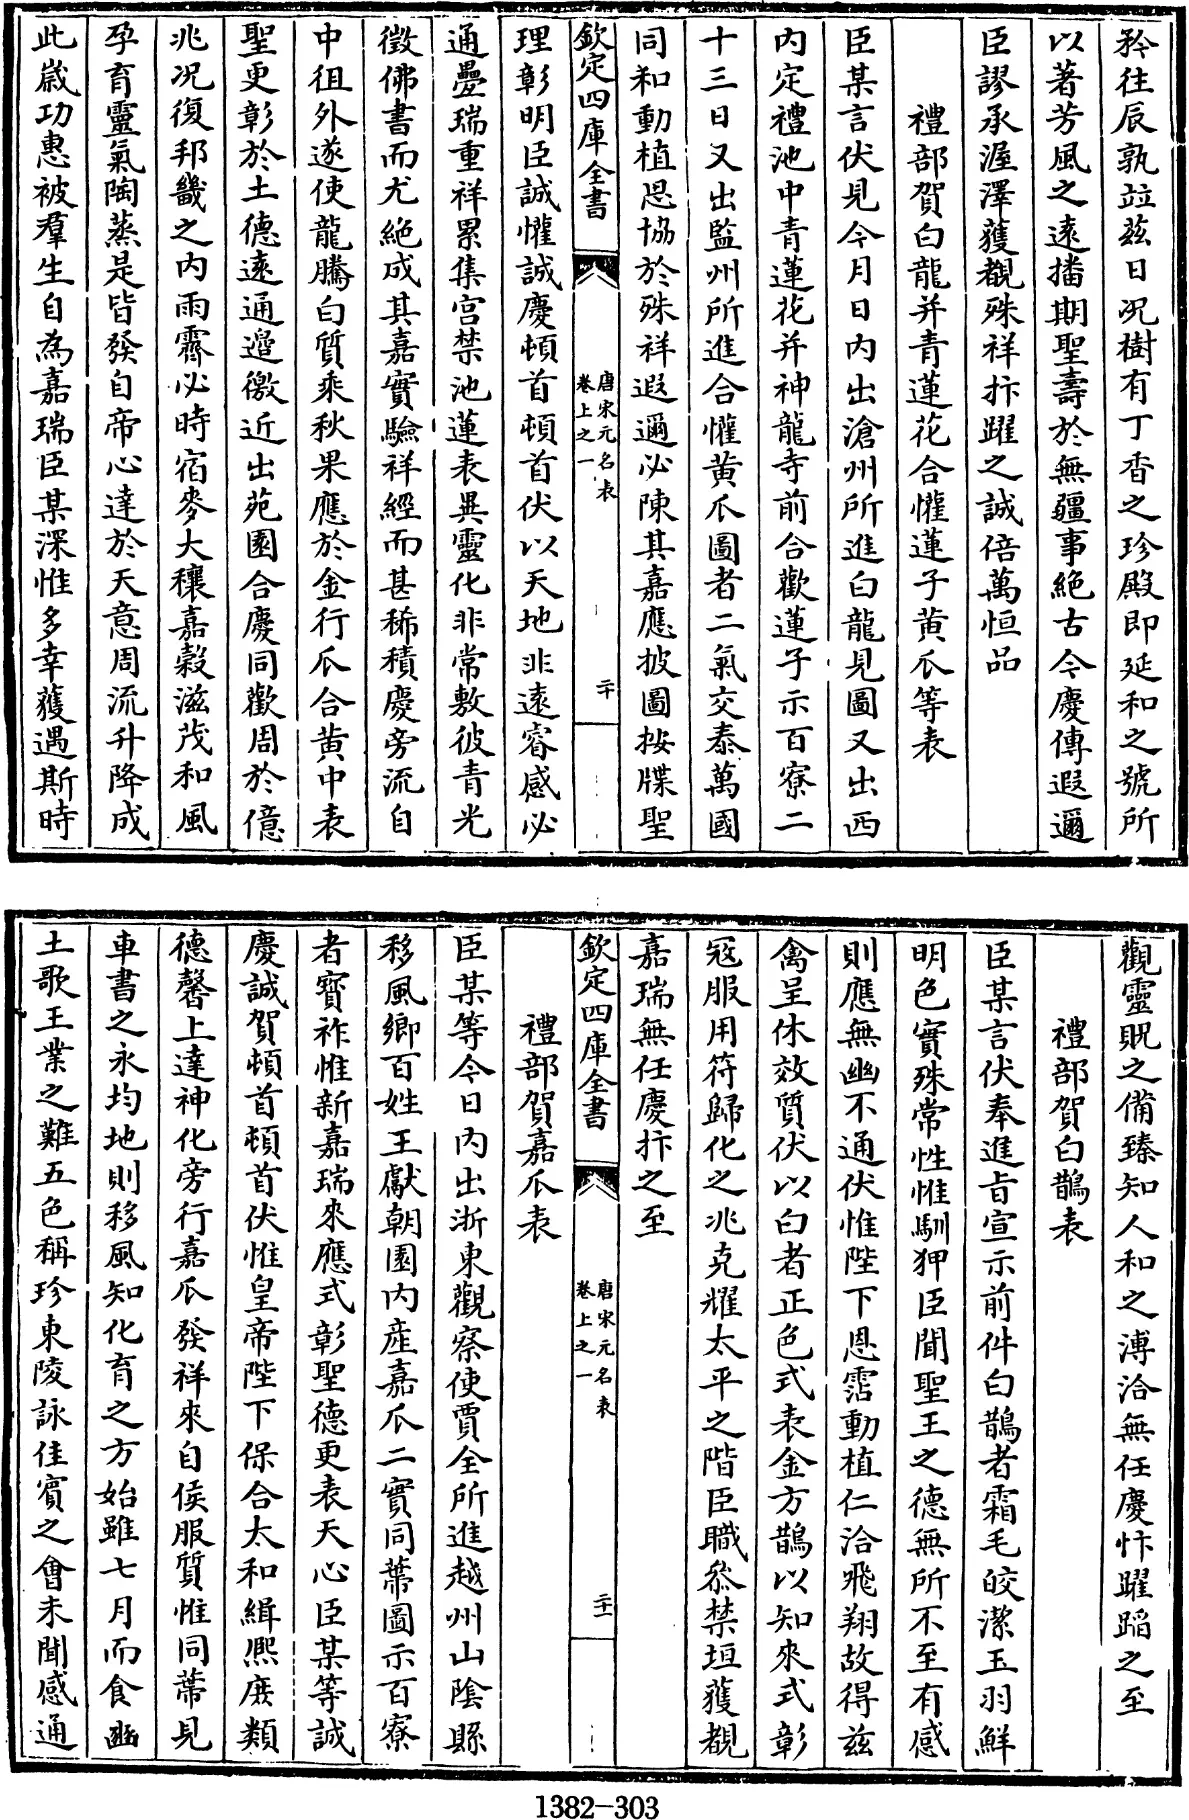 矜往辰孰竝兹日况樹有丁香之珍殿即延和之號所
以著芳風之遠播期聖壽於無疆事絶古今慶傳遐邇
臣謬承渥澤獲覩殊祥抃躍之誠倍萬恒品
禮部賀白龍并青蓮花合懽蓮子黄瓜等表
臣某言伏見今月日内出滄州所進白龍見圖又出西
内定禮池中青蓮花并神龍寺前合歡蓮子示百寮二
十三日又出監州所進合懽黄瓜圖者二氣交泰萬國
同和動植思協於殊祥遐邇必陳其嘉應披圖按牒聖
欽定四庫全書
唐宋元名表
卷上之一
二十
理彰明臣誠懽誠慶頓首頓首伏以天地非遠睿感必
通疊瑞重祥累集宫禁池蓮表異靈化非常敷彼青光
徵佛書而尤絶成其嘉實驗祥經而甚稀積慶旁流自
中徂外遂使龍騰白質乘秋果應於金行瓜合黄中表
聖更彰於土德遠通邉徼近出苑園合慶同歡周於億
兆况復邦畿之内雨霽必時宿麥大穰嘉穀滋茂和風
孕育靈氣陶蒸是皆發自帝心達於天意周流升降成
此嵗功惠被羣生自為嘉瑞臣某深惟多幸獲遇斯時
觀靈貺之備臻知人和之溥洽無任慶忭躍蹈之至
禮部賀白鵲表
臣某言伏奉進旨宣示前件白鵲者霜毛皎潔玉羽鮮
明色實殊常性惟馴狎臣聞聖王之德無所不至有感
則應無幽不通伏惟陛下恩霑動植仁洽飛翔故得兹
禽呈休效質伏以白者正色式表金方鵲以知來式彰
冦服用符歸化之兆克耀太平之階臣職叅禁垣獲覩
嘉瑞無任慶抃之至
欽定四庫全書
唐宋元名表
卷上之一
二十一
禮部賀嘉瓜表
臣某等今日内出浙東觀察使賈全所進越州山陰縣
移風鄉百姓王獻朝園内産嘉瓜二實同蔕圖示百寮
者寳祚惟新嘉瑞來應式彰聖德更表天心臣某等誠
慶誠賀頓首頓首伏惟皇帝陛下保合太和緝熙庶類
德馨上達神化旁行嘉瓜發祥來自侯服質惟同蔕見
車書之永均地則移風知化育之方始雖七月而食豳
土歌王業之難五色稱珍東陵詠佳賓之會未聞感通
1382-303